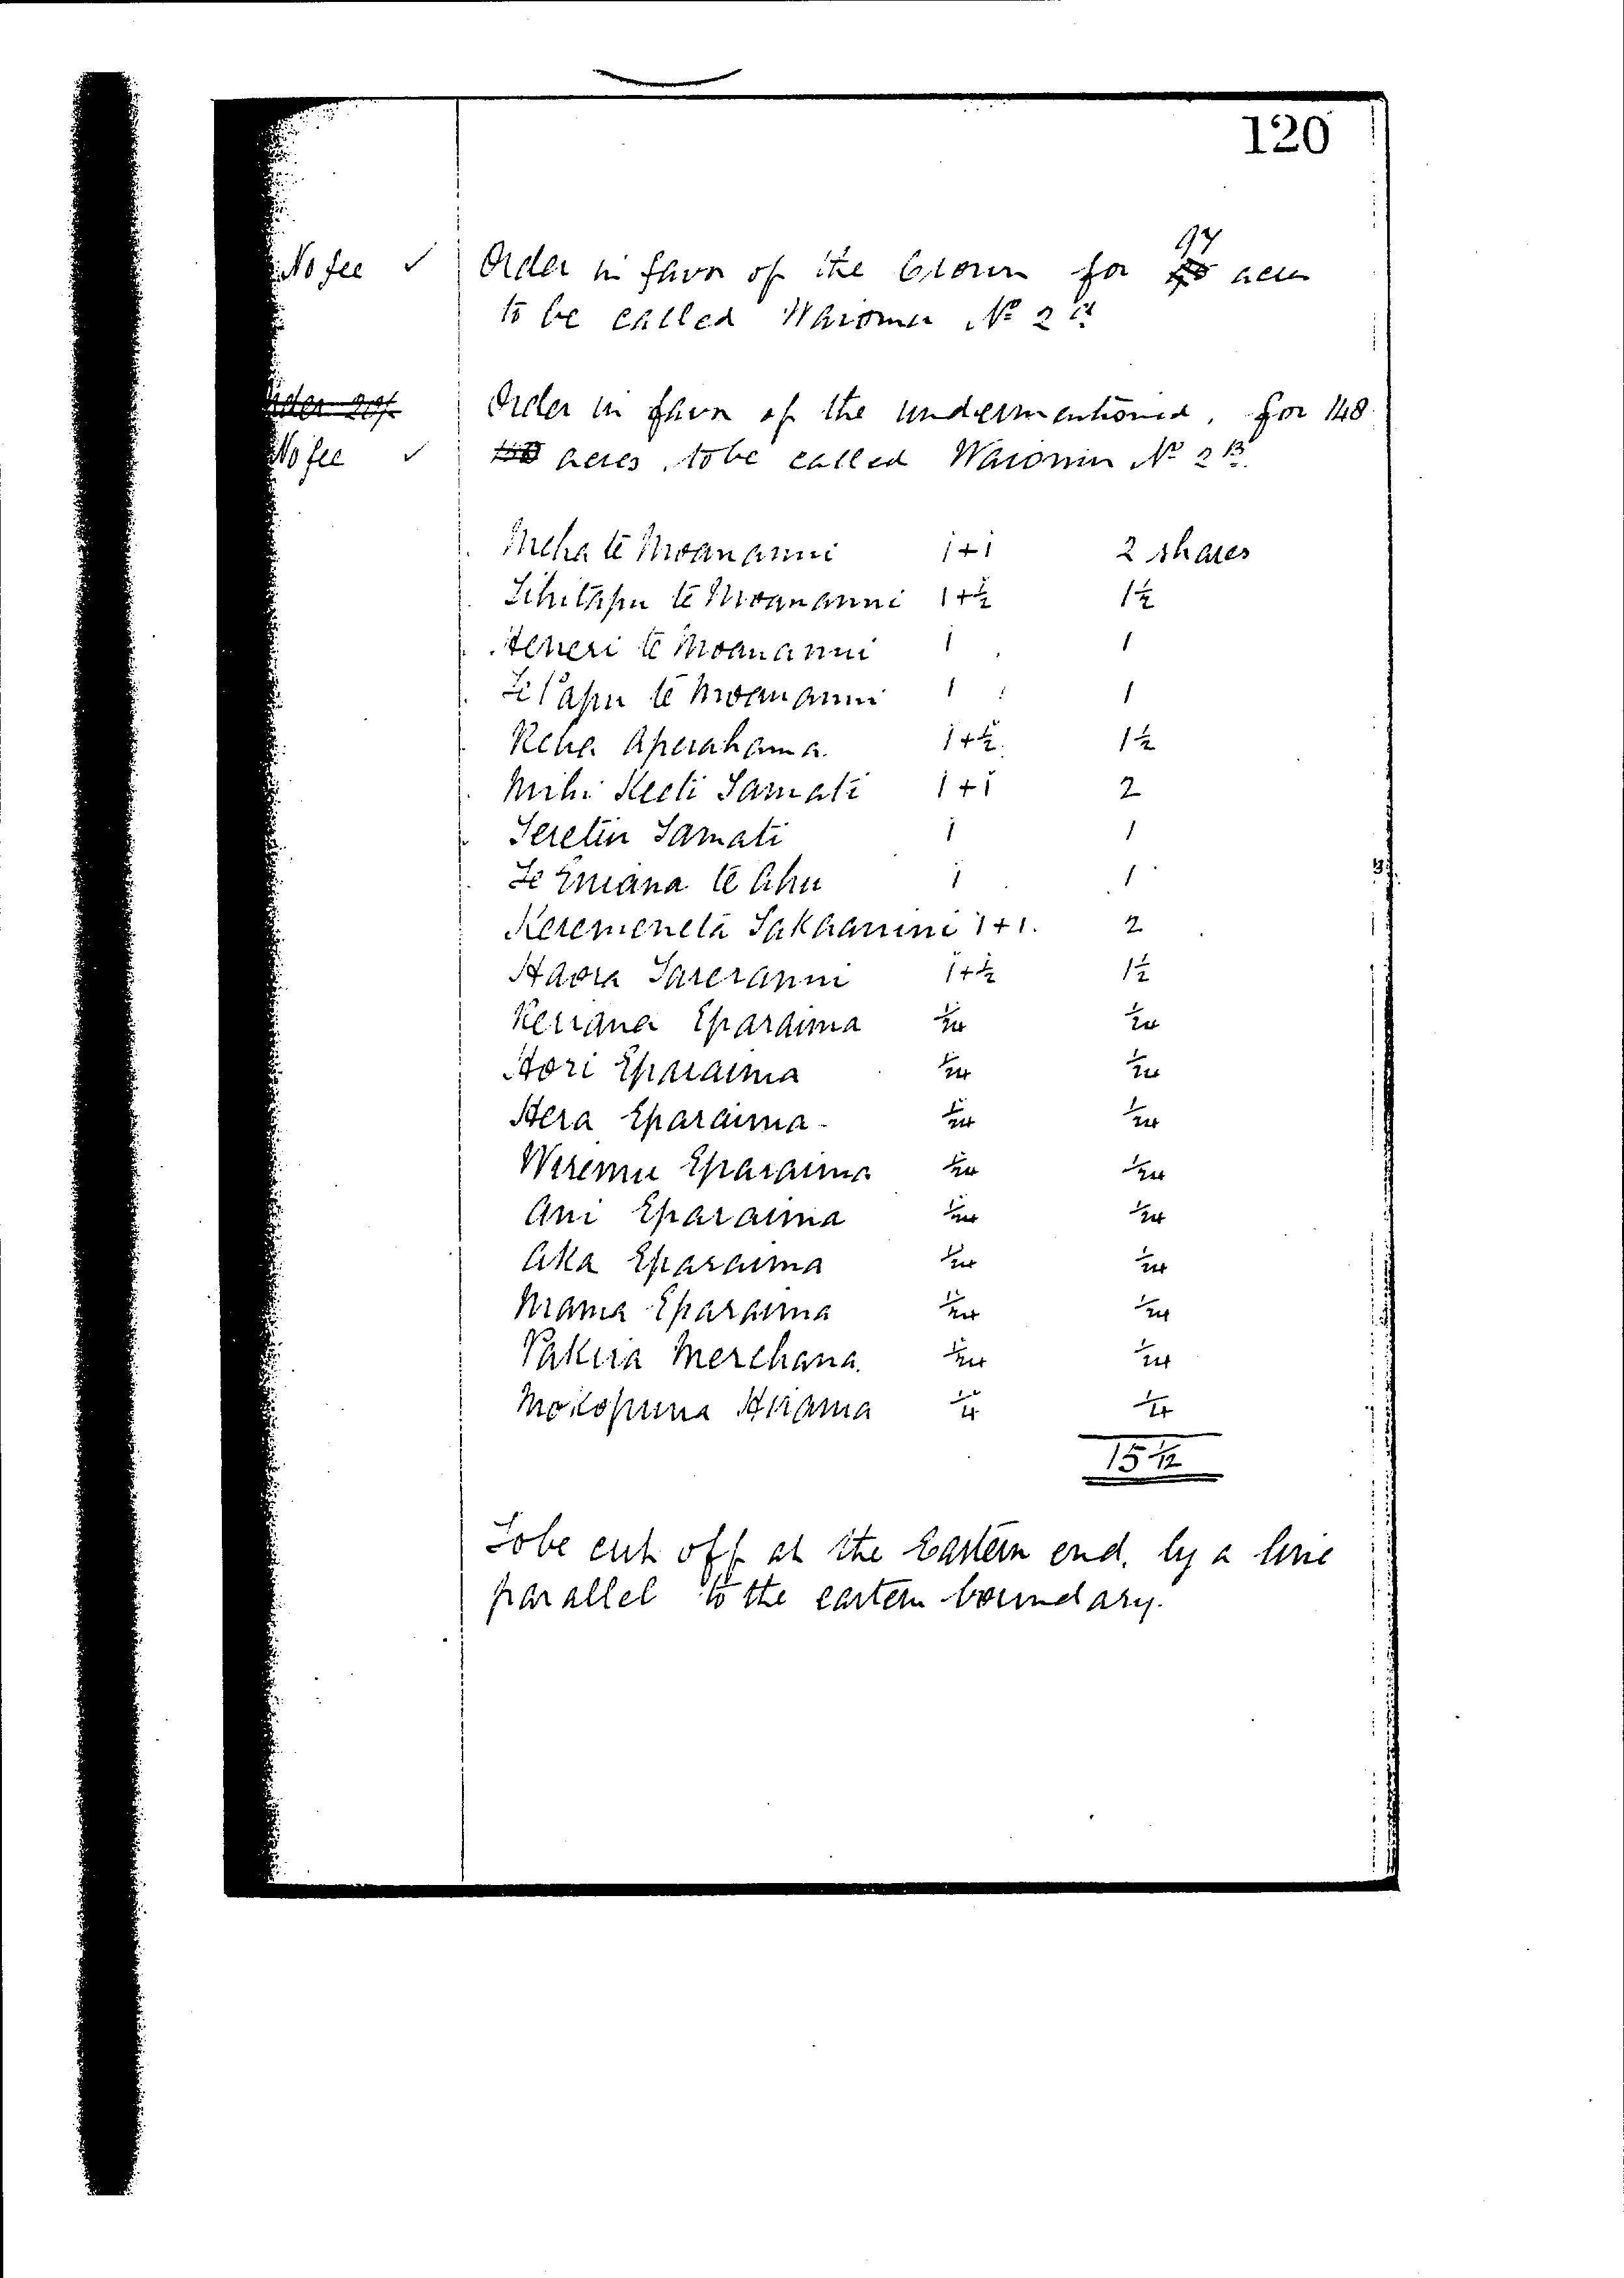 120
No fee ✓ Order in favor of the Crown for 97 acres
to be called Waiomu No 2A
Order 20/-
Order in favor of the undermentioned, for 148
No fee ✓ acres, to be called Waiomu No 2B.
Meha te Moananui 1+1 2 shares
Tihitapu te Moananui 1+½ 1½
Heneri te Moananui 1 1
Te Papu te Moananui 1 1
Reha Aperahama 1+½ 1½
Mihi Keeti Tamati 1+1 2
Teretiu Tamati 1 1
Te Eniana te Ahu 1 1
Keremeneta Takaanini 1+1. 2
Haora Tareranui 1+½ 1½
Reriana Eparaima 1/24 1/24
Hori Eparaima 1/24 1/24
Hera Eparaima 1/24 1/24
Wiremu Eparaima 1/24 1/24
Ani Eparaima 1/24 1/24
Aka Eparaima 1/24 1/24
Mama Eparaima 1/24 1/24
Pakira Merehana 1/24 1/24
Mokopuna Hirama 1/4 1/4
15 1/12
To be cut off at the Eastern end, by a line
parallel to the eastern boundary.